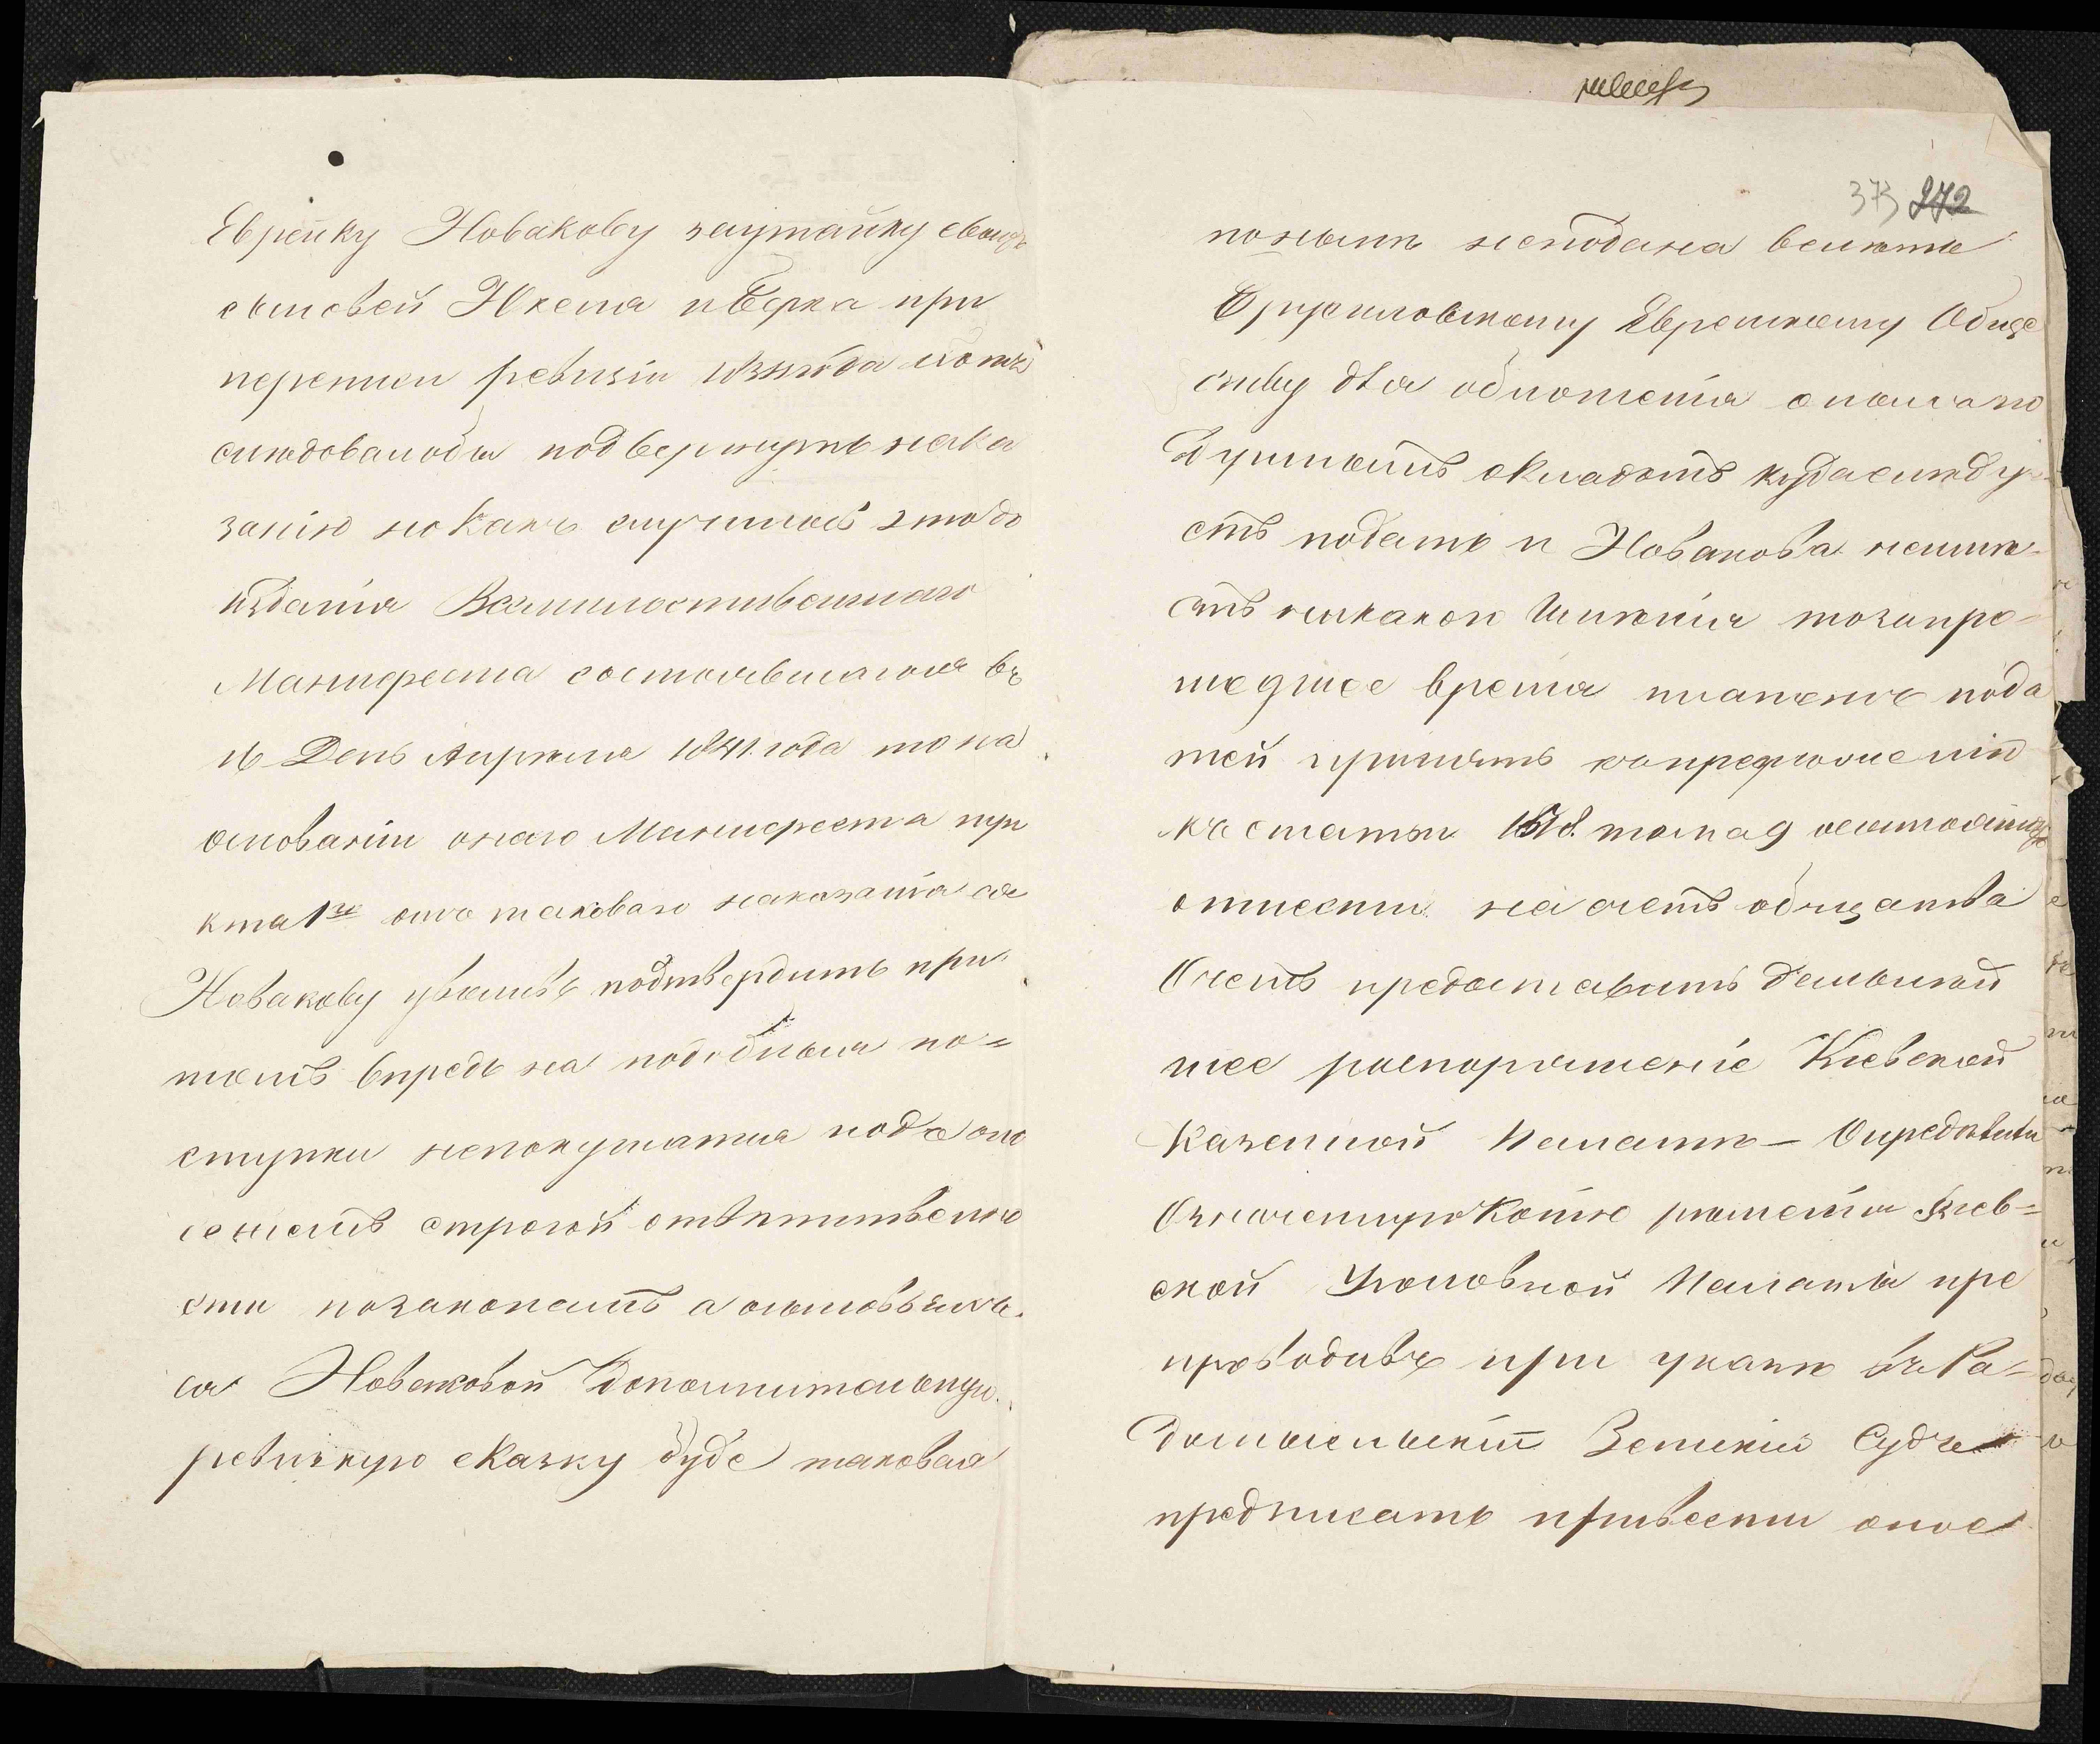 Еврейку Новакову заутайку своихъ
сыновей Икела и Берка при
переписи ревизіи 1834 года хотя
слѣдовалобы подвергнуть нака
занію но какъ случилось это до
изданія Всемилостивѣйшаго
Манифеста состоявшагося въ
16 День Апрѣля 1841. года то на
основаніи онаго Манифеста пун
кта 1го отъ таковаго наказанія ея
Новакову уволивъ подтвердить при
томъ впредь на подобныя по=
ступки непокушатся подъ опа
сеніемъ строгой отвѣтственно
сти позаконамъ а осыновьяхъ
ея Новаковой Дополнительную
ревизкую сказку буде таковая
373 272
поныне неподана велѣть
Брусиловскому Еврейскому Обще
ству для обложенія оныхъ по
Душнымъ окладомъ кудаслѣду
етъ подать и Новакова неимѣ=
етъ никакого Имѣнія тозапро=
шедшее время платежъ пода
тей принять
къ статьи тома 9
отнести на счетъ общества
Очемъ предоставить дальнѣй
шее распоряженіе Кіевской
Казенной Палатѣ — Опредѣлили
Означенную Копію рѣшенія Кіев=
ской Уголовной Палаты пре
проводивъ при указѣ въ Ра=
домысльскій Земскій Судъ
предписать привести оное